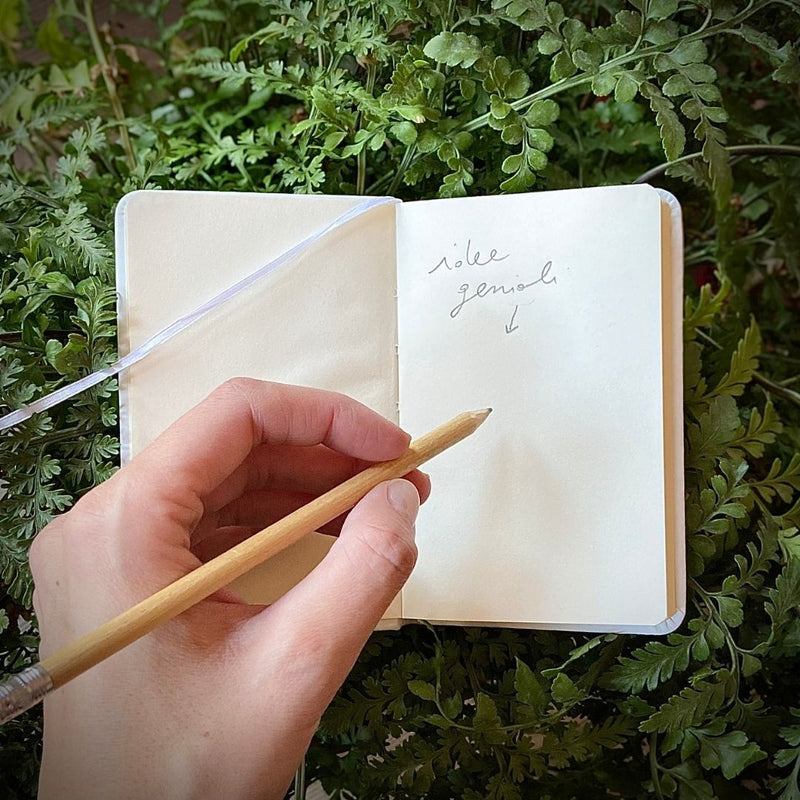 idee
geniali
↓